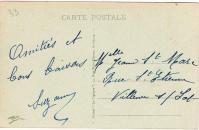 33
CARTE POSTALE
Amitiés et
bons baisers
Suzanne
Mlle
Jeanne St Marc
Rue St Etienne
Villeneuve s/ Lot